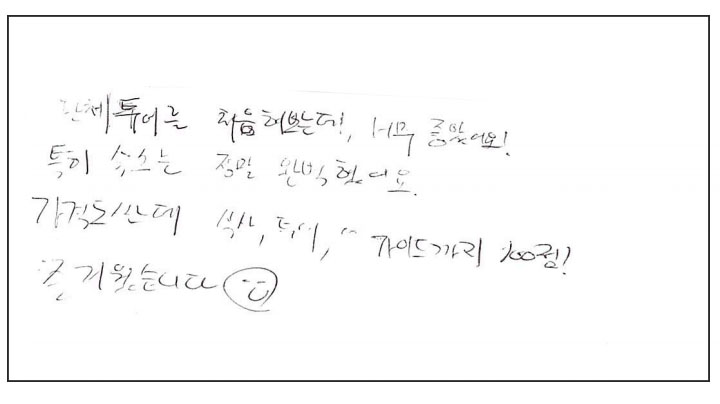 단체투어를 처음해보는데!, 너무 좋았어요!
특히 숙소는 정말 완벽했어요.
가격도싼데 식사, 투어, 가이드까지 100점!
즐거웠습니다